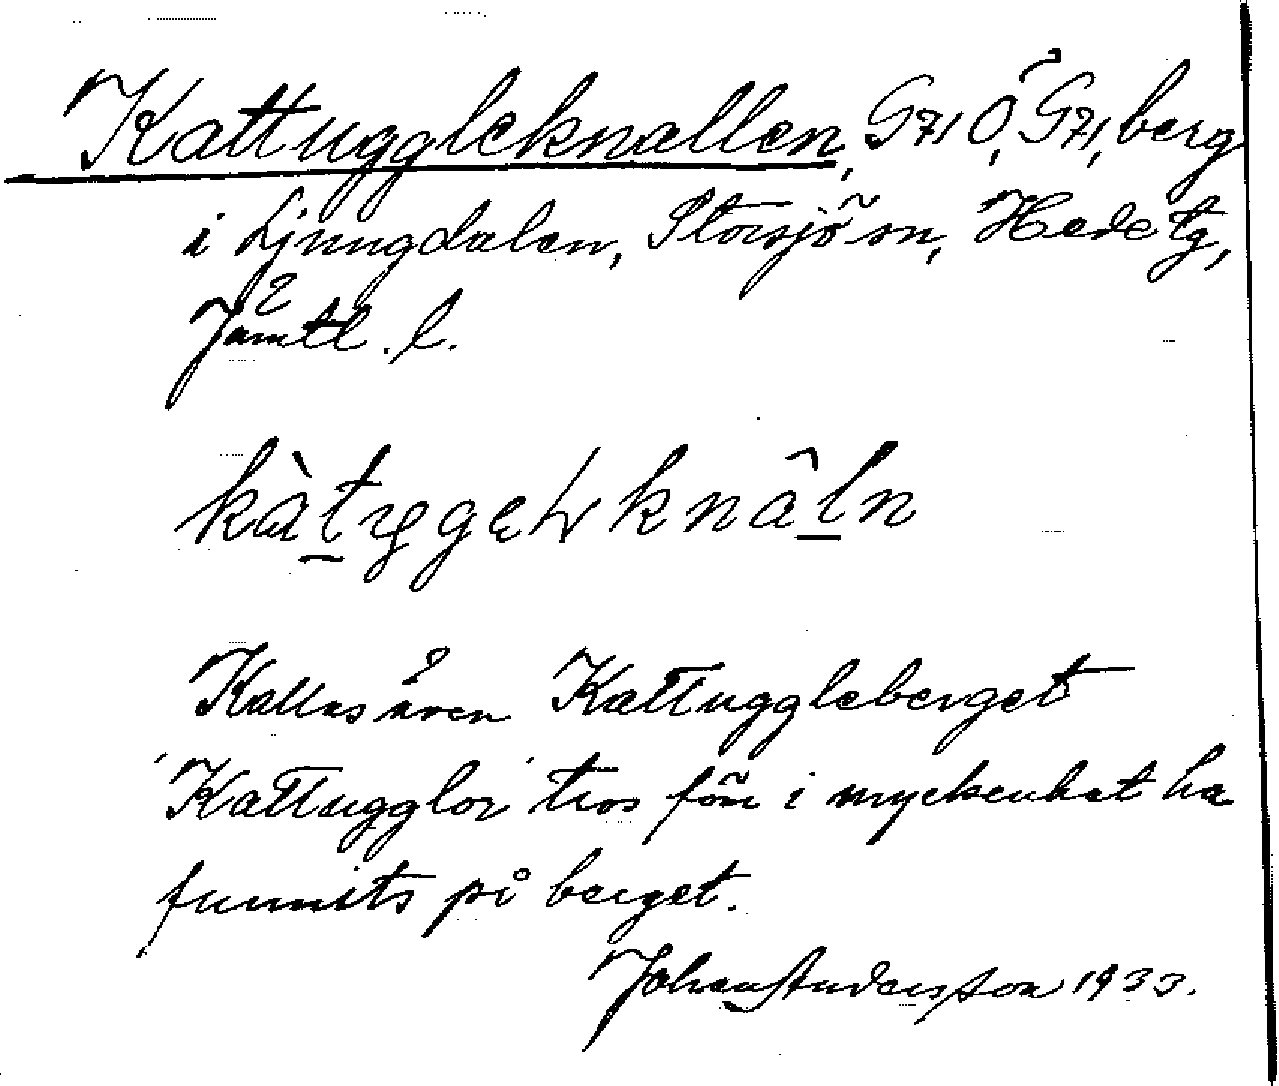 Kattuggleknallen, G71 Ö, G71, berg
i Ljungdalen, Storsjö sn, Hede tg,
Jämtl. l.
Kallas även Kattuggleberget
'Kattugglor' tros förr i myckenhet ha
funnits på berget.
Johan Andersson 1933.